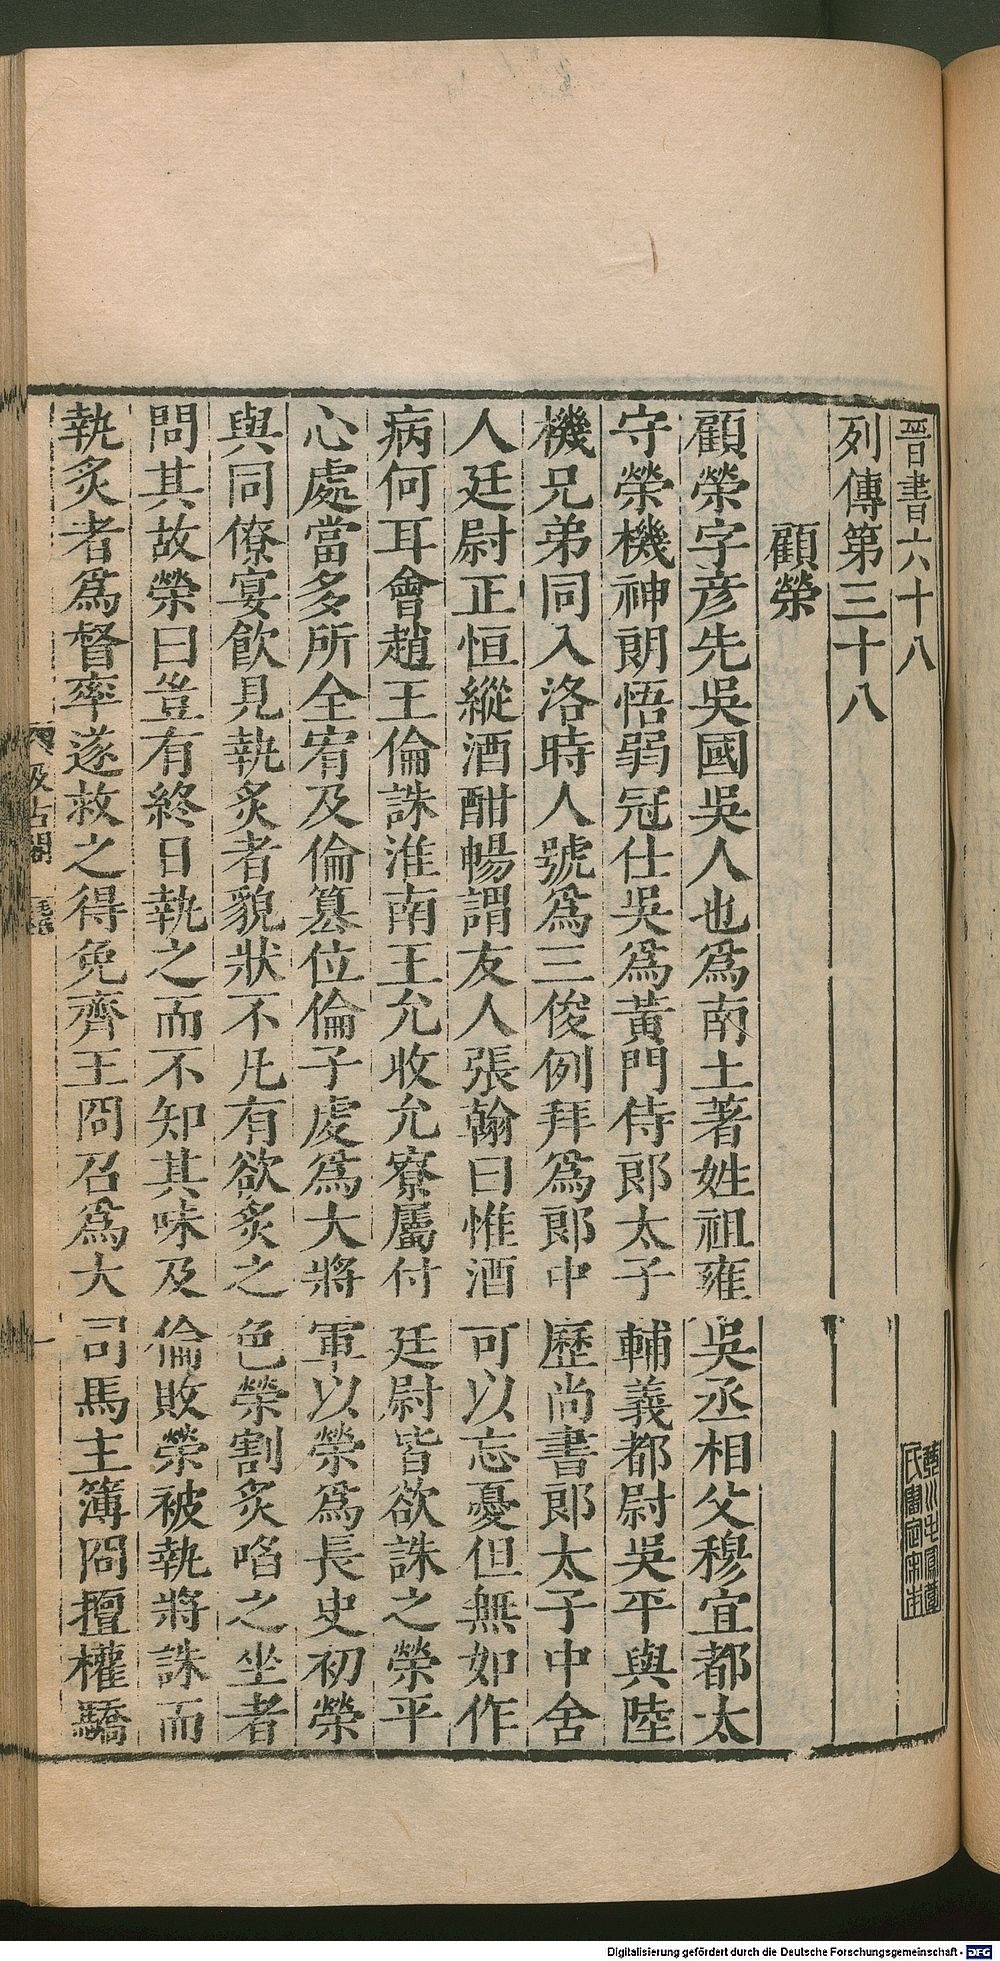 晉書六十八
列傳第三十八
顧榮
顧榮字彥先吳國吳人也爲南土著姓祖雍吳丞相父穆宜都太
守榮機神朗悟弱冠仕吳爲黃門侍郎太子輔義都尉吳平與陸
機兄弟同入洛時人號爲三俊例拜爲郎中歷尚書郎太子中舍
人廷尉正恒縱酒酣暢謂友人張翰曰惟酒可以忘憂但無如作
病何耳會趙王倫誅淮南王允收允寮屬付廷尉皆欲誅之榮平
心處當多所全宥及倫篡位倫子虔爲大將軍以榮爲長史初榮
與同僚宴飲見執炙者貌狀不凡有欲炙之色榮割炙啗之坐者
問其故榮曰豈有終日執之而不知其味及倫敗榮被執將誅而
執炙者爲督率遂救之得免齊王冏召爲大司馬主簿冏擅權驕
汲古閣
毛氏
Digitalisierung gefördert durch die Deutsche Forschungsgemeinschaft - DFG